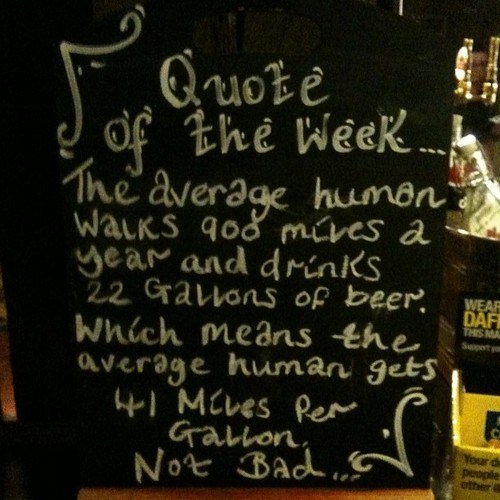 Quote
of the Week...
The average human
walks 900 miles a
year and drinks
22 Gallons of beer.
Which means the
average human gets
41 Miles Per
Gallon.
Not Bad...
WEAR
DAFF
THIS MA
Support yo
Your d
people
other a